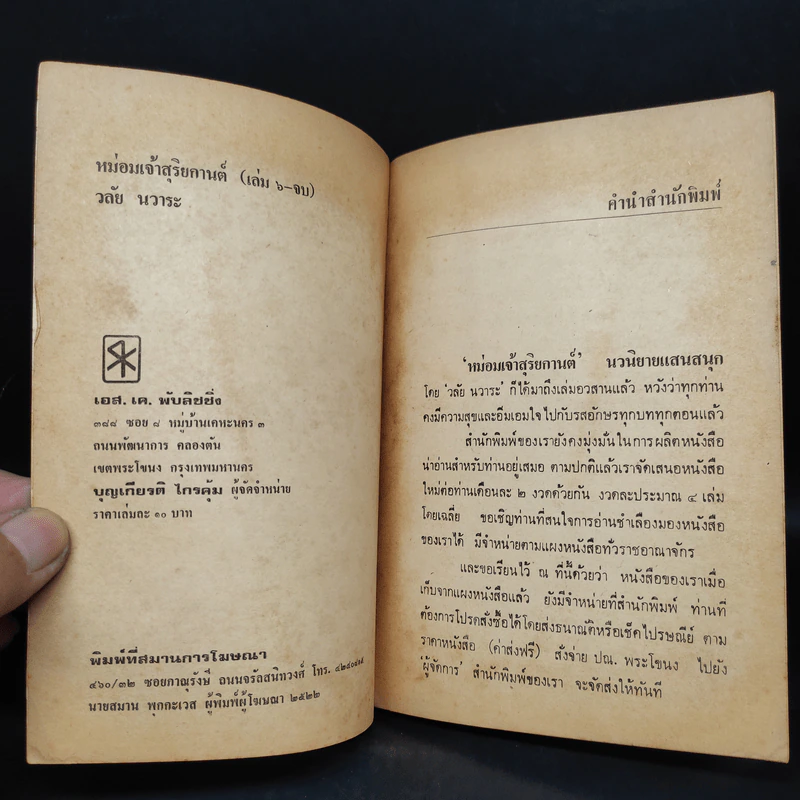 หม่อมเจ้าสุริยกานต์ (เล่ม ๖-จบ)
วลัย นวาระ
เอส. เค. พับลิชชิ่ง
๓๘๘ ซอย ๘ หมู่บ้านเคหะนคร ๓
ถนนพัฒนาการ คลองตัน
เขตพระโขนง กรุงเทพมหานคร
บุญเกียรติ ไกรคุ้ม ผู้จัดจำหน่าย
ราคาเล่มละ ๑๐ บาท
พิมพ์ที่สมานการโฆษณา
๔๖๐/๓๒ ซอยภาณุรังษี ถนนจรัลสนิทวงศ์ โทร.
นายสมาน พุกกะเวส ผู้พิมพ์ผู้โฆษณา ๒๕๒๒
คำนำสำนักพิมพ์
'หม่อมเจ้าสุริยกานต์' นวนิยายแสนสนุก
โดย 'วลัย นวาระ' ก็ได้มาถึงเล่มอวสานแล้ว หวังว่าทุกท่าน
คงมีความสุขและอิ่มเอมใจไปกับรสอักษรทุกบททุกตอนแล้ว
สำนักพิมพ์ของเรายังคงมุ่งมั่นในการผลิตหนังสือ
น่าอ่านสำหรับท่านอยู่เสมอ ตามปกติแล้วเราจัดเสนอหนังสือ
ใหม่ต่อท่านเดือนละ ๒ งวดด้วยกัน งวดละประมาณ ๔ เล่ม
โดยเฉลี่ย ขอเชิญท่านที่สนใจการอ่านชำเลืองมองหนังสือ
ของเราได้ มีจำหน่ายตามแผงหนังสือทั่วราชอาณาจักร
และขอเรียนไว้ ณ ที่นี้ด้วยว่า หนังสือของเราเมื่อ
เก็บจากแผงหนังสือแล้ว ยังมีจำหน่ายที่สำนักพิมพ์ ท่านที่
ต้องการโปรดสั่งซื้อได้โดยส่งธนาณัติหรือเช็คไปรษณีย์ ตาม
ราคาหนังสือ (ค่าส่งฟรี) สั่งจ่าย ปณ. พระโขนง ไปยัง
'ผู้จัดการ' สำนักพิมพ์ของเรา จะจัดส่งให้ทันที